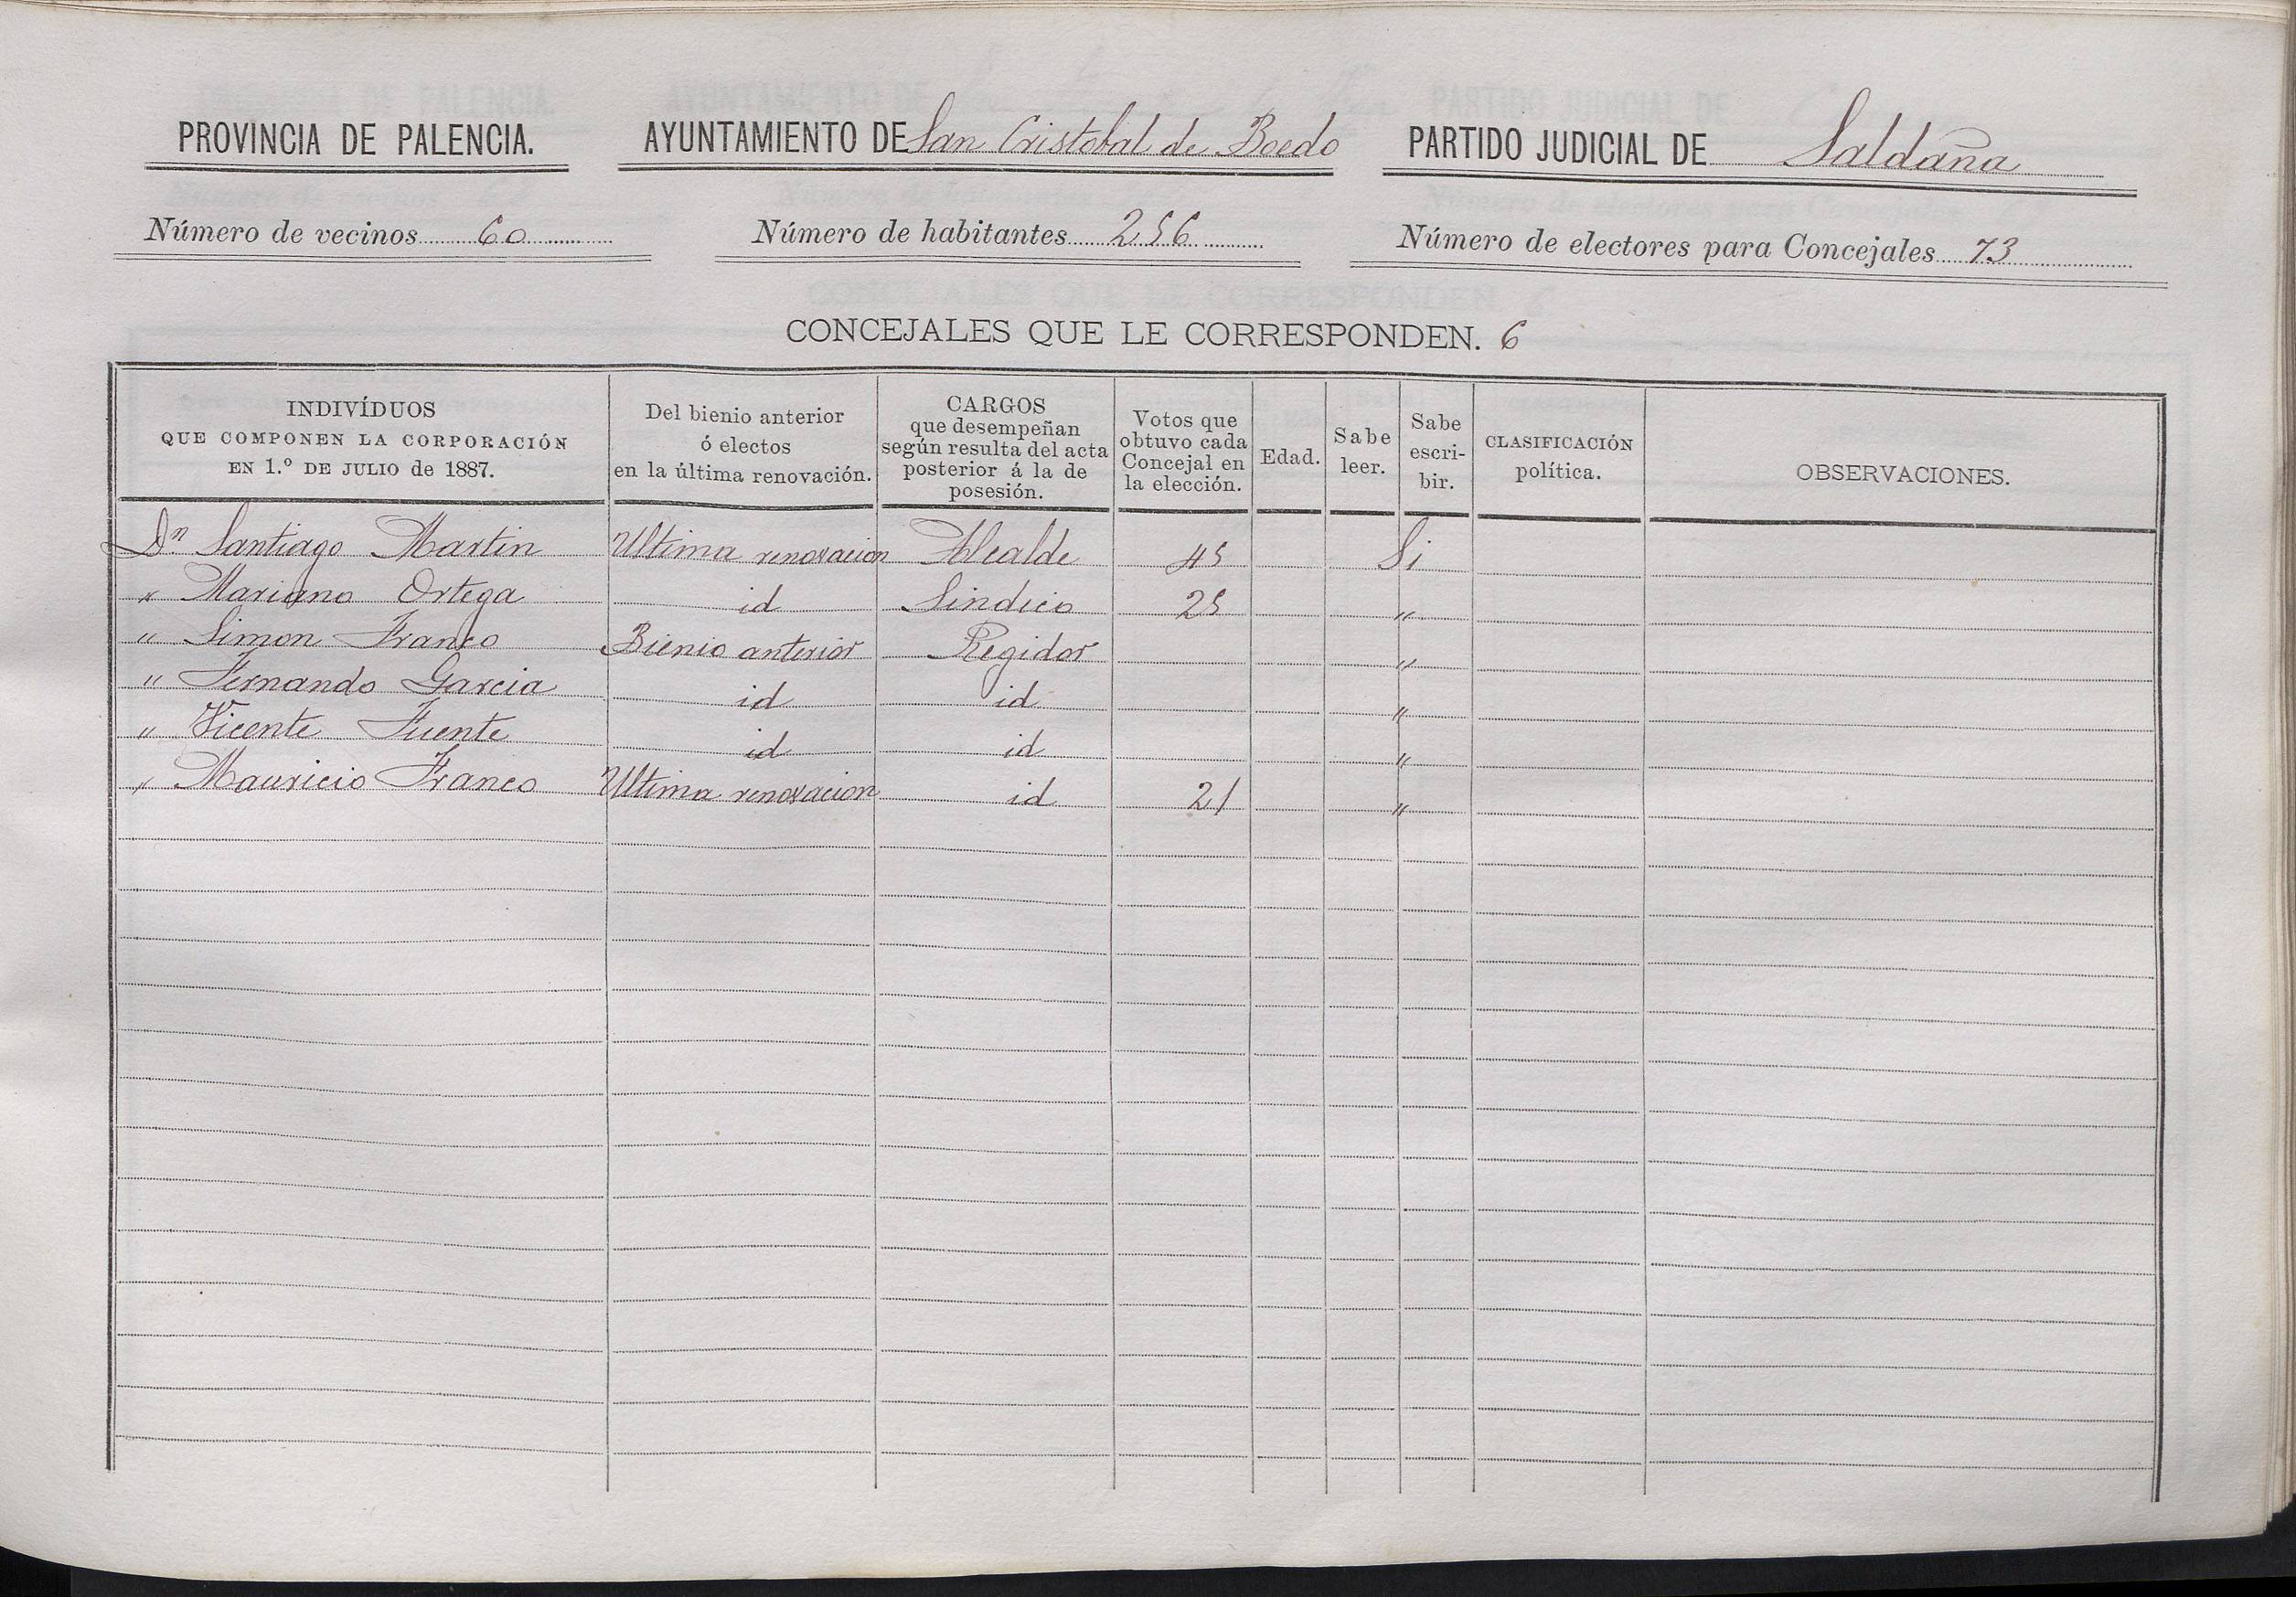 PROVINCIA DE PALENCIA. AYUNTAMIENTO DE San Cristobal de Boedo PARTIDO JUDICIAL DE Saldaña
Número de vecinos 60 Número de habitantes 256 Número de electores para Concejales 73
CONCEJALES QUE LE CORRESPONDEN. 6
INDIVÍDUOS
QUE COMPONEN LA CORPORACIÓN
EN 1.º DE JULIO de 1887.
Del bienio anterior
ó electos
en la última renovación.
CARGOS
que desempeñan
según resulta del acta
posterior á la de
posesión.
Votos que
obtuvo cada
Concejal en
la elección.
Edad.
Sabe
leer.
Sabe
escri-
bir.
CLASIFICACIÓN
política.
OBSERVACIONES.
Dn Santiago Martin Ultima renovacion Alcalde 45 Si
" Mariano Ortega id Sindico 25 "
" Simon Franco Bienio anterior Regidor "
" Fernando Garcia id id "
" Vicente Fuente id id "
" Mauricio Franco Ultima renovacion id 21 "